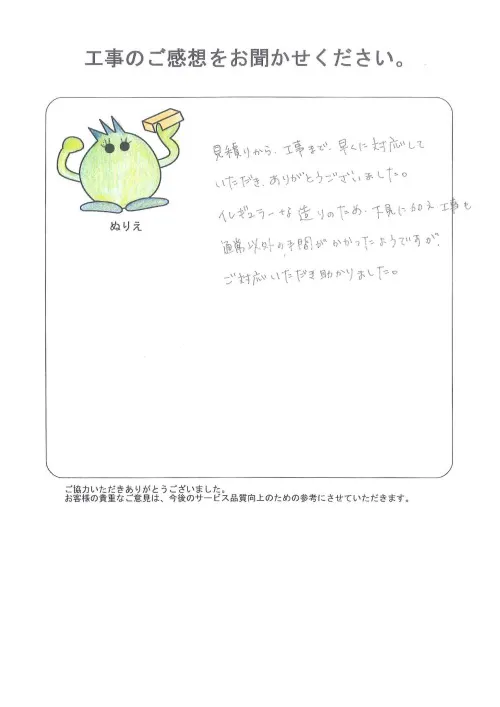 工事のご感想をお聞かせください。
ぬりえ
見積りから、工事まで、早くに対応して
いただき、ありがとうございました。
イレギュラーな造りのため、 工事も
通常以外の手間がかかったようですが、
ご対応いただき助かりました。
ご協力いただきありがとうございました。
お客様の貴重なご意見は、今後のサービス品質向上のための参考にさせていただきます。